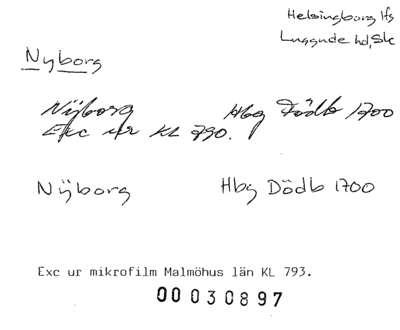 Helsingborg lfs
Luggude hd, Sk
Nyborg
Nÿborg Hbg Dödb 1700
Exc ur KL 790.
Nÿborg Hbg Dödb 1700
Exc ur mikrofilm Malmöhus län KL 793.
00030897